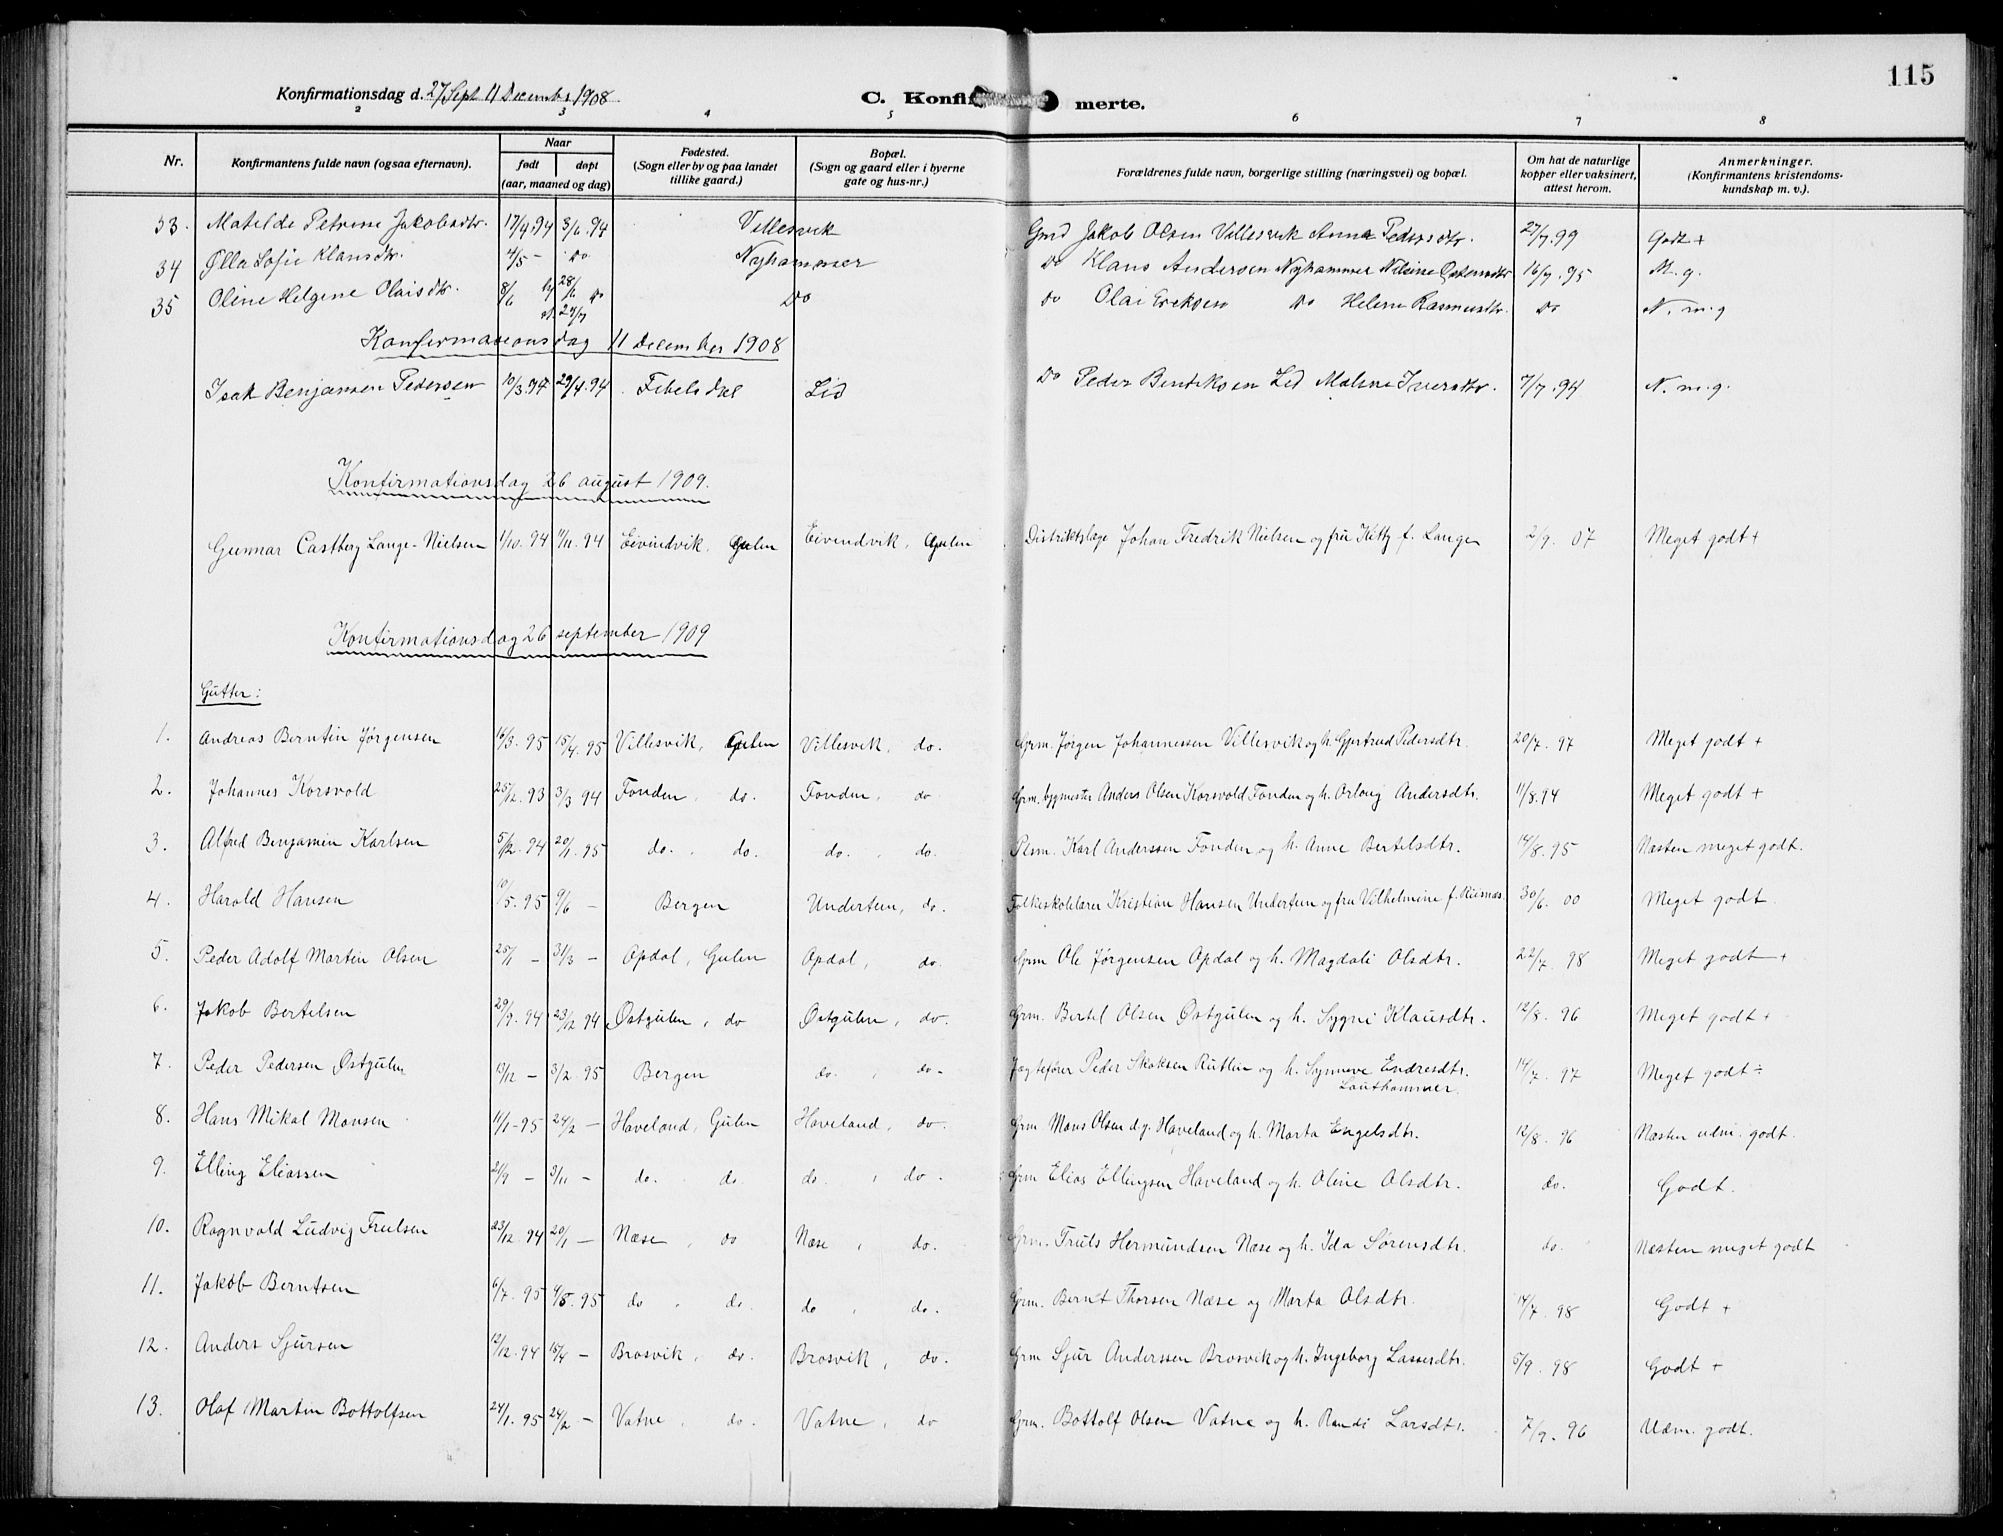 115
Konfirmationsdag d. 27 Sept 11 Decembr 1908
C. Konfirmerte.
2 3 4 5 6 7 8
Nr. Konfirmantens fulde navn (ogsaa efternavn). Naar født døpt (aar, maaned og dag) Fødested. (Sogn eller by og paa landet tillike gaard.) Bopæl. (Sogn og gaard eller i byerne gate og hus-nr.) Forældrenes fulde navn, borgerlige stilling (næringsvei) og bopæl. Om hat de naturlige kopper eller vaksinert, attest herom. Anmerkninger. (Konfirmantens kristendomskundskap m. v.).
33. Matilde Petrine Jakobsdtr. 17/4.94 3/6.94 Villesvik Gmd Jakob Olsen Villesvik Anna Pedersdtr. 27/7.99 Godt +
34 Ølla Sofie Klausdtr. 4/5 - do Nyhammer Do Klaus Andersen Nyhammer Nilsine 16/7.95 M.g.
35 Oline Helgene Olaisdtr. 8/6 28/6 do 29/7 Do do Olai Eriksen do Helene Rasmusdtr. do N.m.g
Konfirmationsdag 11 December 1908
Isak Benjamin Pedersen 10/3.94 29/4.94 Febelsdal Lid Do Peder Bendiksen Lid Malene Iversdtr. 7/7.94 N.m.g.
Konfirmationsdag 26 august 1909.
Gunnar Castberg Lange-Nielsen 1/10.94 11/11.94 Eivindvik, Gulen Eivindvik, Gulen Distriktslæge Johan Fredrik Nielsen og fru Kitty f. Lange 2/9. 07 Meget godt +
Konfirmationsdag 26 september 1909
Gutter:
1. Andreas Berntin Jørgensen 16/3.95 15/4.95 Villesvik, Gulen Villesvik, do. Grm. Jørgen Johannessen Villesvik og h. Gjertrud Pedersdtr. 20/7.97 Meget godt +
2. Johannes Korsvold 25/12.93 3/3 94 Fonden, do. Fonden, do Grm. bygmester Anders Olsen Korsvold Fonden og h. Arlaug Andersdtr. 11/8.94 Meget godt +
3. Alfred Benjamin Karlsen 5/12.94 20/1.95 do. do. do. do. Plsm. Karl Anderssen Fonden og h. Anne Bertelsdtr. 14/8.95 Næsten meget godt.
4. Harald Hansen 10/5.95 9/6 - Bergen Undertun, do. Folkeskolelærer Kristian Hansen Undertun og fru Vilhelmine f. Risnæs 30/6. 00 Meget godt.
5. Peder Adolf Martin Olsen 25/1 - 31/3 - Opdal, Gulen Opdal, do. Grm Ole Jørgensen Opdal og h. Magdali Olsdtr. 22/7.98 Meget godt +
6. Jakob Bertelsen 29/9.94 23/12 94 Østgulen, do Østgulen, do. Grm. Bertel Olsen Østgulen og h. Sygni Klausdtr. 12/8.96 Meget godt +
7. Peder Pedersen Østgulen 13/12 - 3/2.95 Bergen do. , do. Jagtefører Peder Skaksen Rutlin og h. Synneve Endresdtr. Lauthammer. 14/7.97 Meget godt ÷
8. Hans Mikal Monsen 11/1-95 24/2 - Haveland, Gulen Haveland, do. Grm Mons Olsen d.y. Haveland og h. Marta Engelsdtr. 12/8.96 Næsten udm. godt.
9. Elling Eliassen 21/9 - 3/11 - do. do. do. , do. Grm Elias Ellingsen Haveland og h. Oline Olsdtr. do. Godt.
10. Ragnvald Ludvig Trulsen 23/12.94 20/1 - Næse , do Næse , do. Grm. Truls Hermundsen Næse og h. Ida Sørensdtr. do. Næsten meget godt
11. Jakob Berntsen 6/7.95 4/8.95 do , do. do , do. Grm. Bernt Thorsen Næse og Marta Olsdtr. 14/7.98 Godt +
12. Anders Sjursen 12/12.94 15/4 - Brosvik, do. Brosvik, do. Grm Sjur Anderssen Brosvik og h. Ingeborg Lassesdtr. 5/9.98 Godt +
13. Olaf Martin Bottolfsen 24/1.95 24/2 - Vatne, do. Vatne, do Grm. Bottolf Olsen Vatne og h. Randi Larsdtr. 7/9.96 Udm. godt.